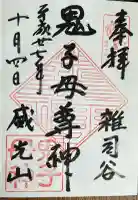 奉拝
雑司谷
鬼子母尊神
威光山
平成廿七年
十月四日